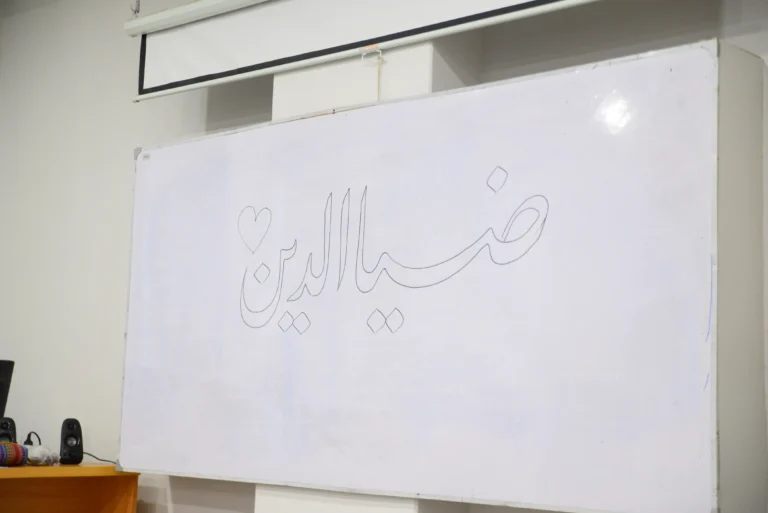 ضیاالدین